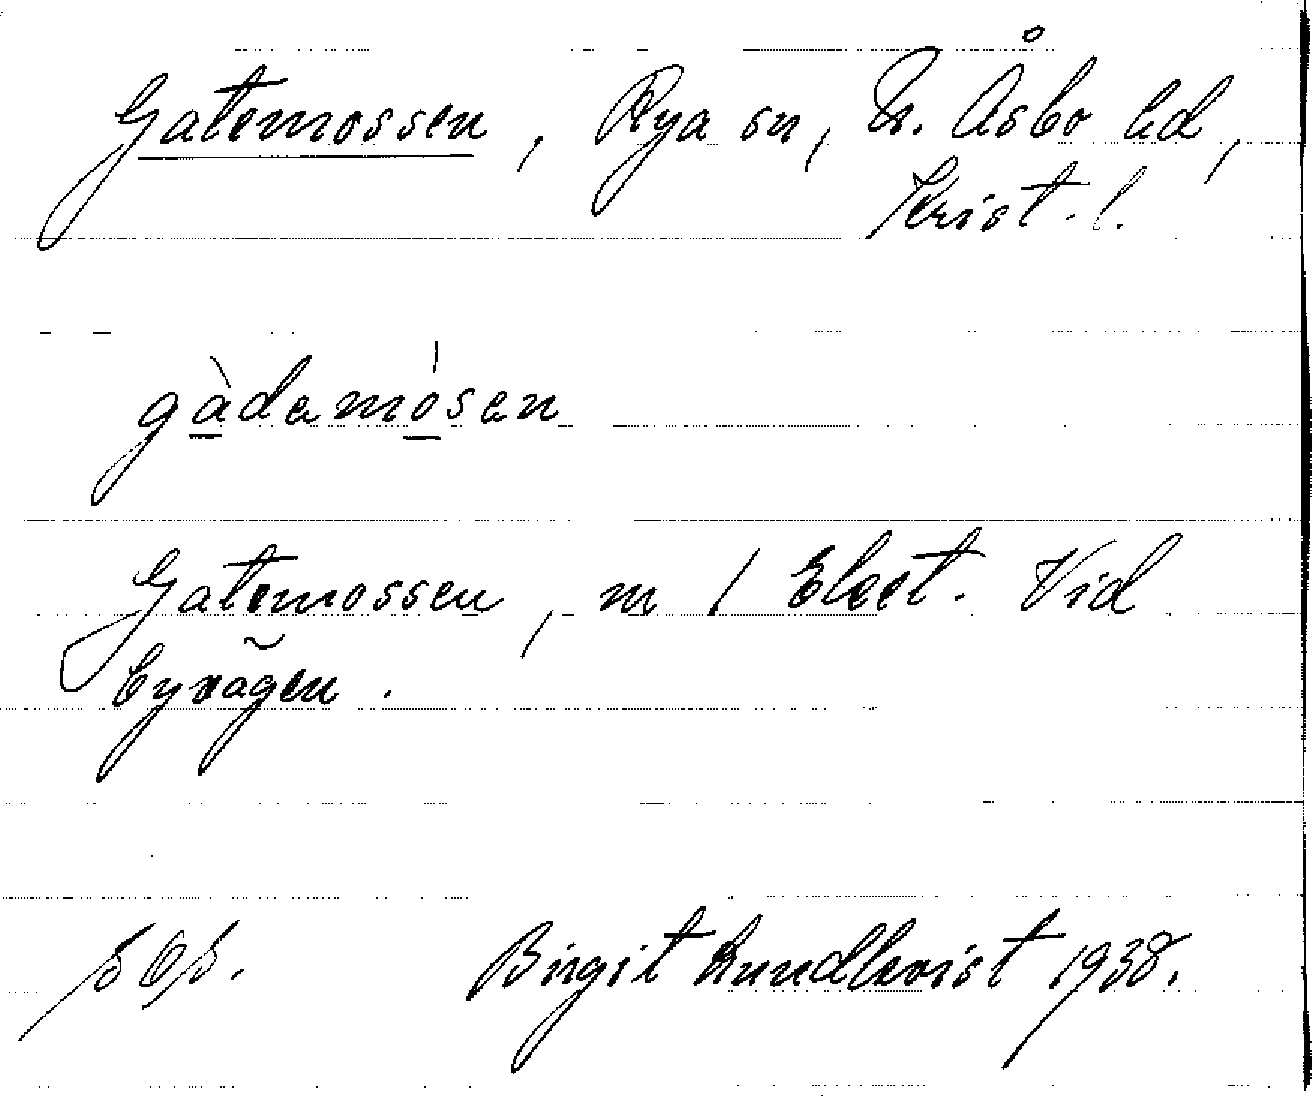 Gatemossen, Rya sn, N. Åsbo hd,
Krist. l.
gàdamósen
Gatemossen, m / Ekeet. Vid
byvägen.
s 68.
Birgit Lundkvist 1938.